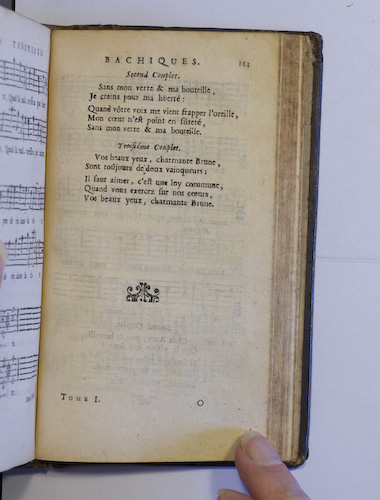 BACHIQUES. 161
Second Couplet.
Sans mon verre & ma bouteille,
Je crains pour ma liberté:
Quand vôtre voix me vient frapper l'oreille,
Mon cœur n'est point en sûreté,
Sans mon verre & ma bouteille.
Troisiéme Couplet.
Vos beaux yeux, charmante Brune,
Sont toûjours de doux vainqueurs:
Il faut aimer, c'est une loy commune,
Quand vous exercez sur nos cœurs,
Vos beaux yeux, charmante Brune.
TOME I. O